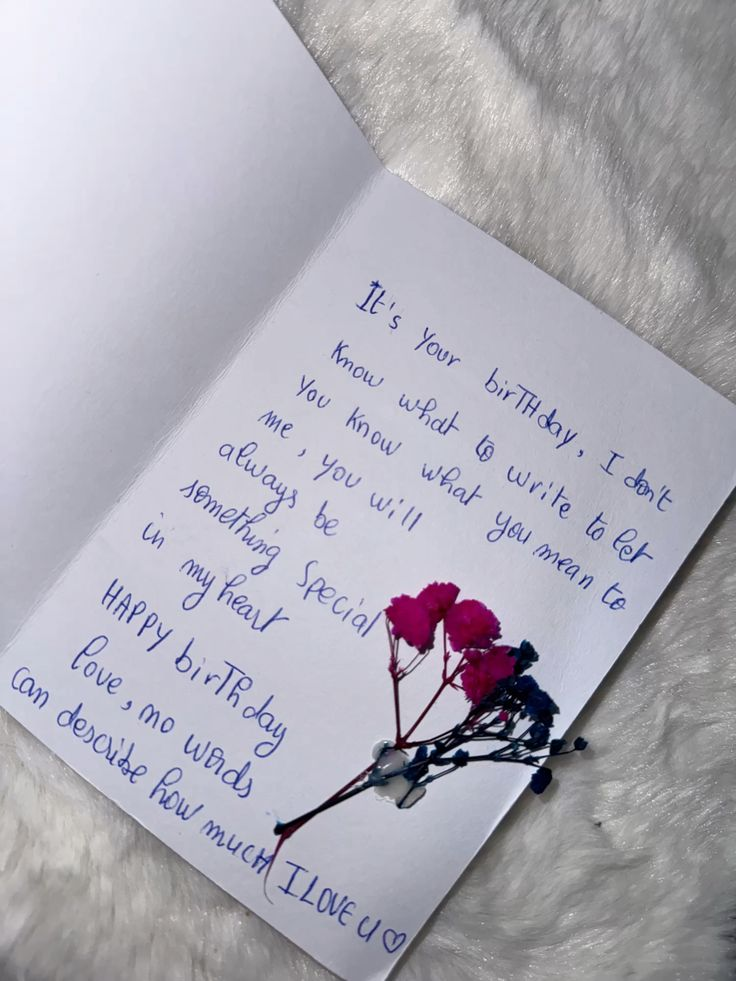 It's your birTHday, I don't
Know what to write to let
You Know what you mean to
me, you will
always be
something Special
in my heart
HAPPY birThday
love, no words
can describe how mucH I LOVE U ♡